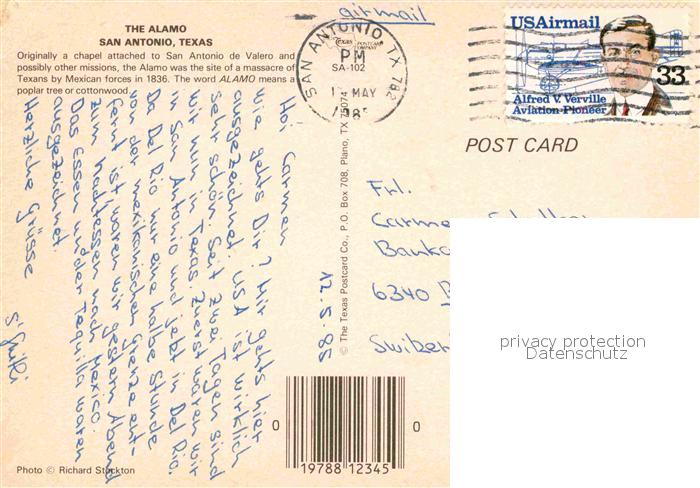 THE ALAMO
SAN ANTONIO, TEXAS
Originally a chapel attached to San Antonio de Valero and
possibly other missions, the Alamo was the site of a massacre of
Texans by Mexican forces in 1836. The word ALAMO means a
poplar tree or cottonwood.
airmail
SAN ANTONIO TX 782
PM
MAY
USAirmail
33
Alfred V. Verville
Aviation Pioneer
POST CARD
Texas POSTCARD COMPANY
SA-102
© The Texas Postcard Co., P.O. Box 708, Plano, TX 75074
12.5.85
Hoi Carmen
Wie gehts Dir? Mir gehts hier
ausgezeichnet. USA ist wirklich
sehr schön. Seit zwei Tagen sind
wir nun in Texas. Zuerst waren wir
in San Antonio und jetzt in Del Rio.
Da Del Rio nur eine halbe Stunde
von der mexikanischen Grenze ent-
fernt ist waren wir gestern Abend
zum Nachtessen nach Mexico.
Das Essen und der Tequilla waren
ausgezeichnet.
Herzliche Grüsse
Frl.
Carmen
6340
privacy protection
Datenschutz
0
19788 12345
0
Photo © Richard Stockton